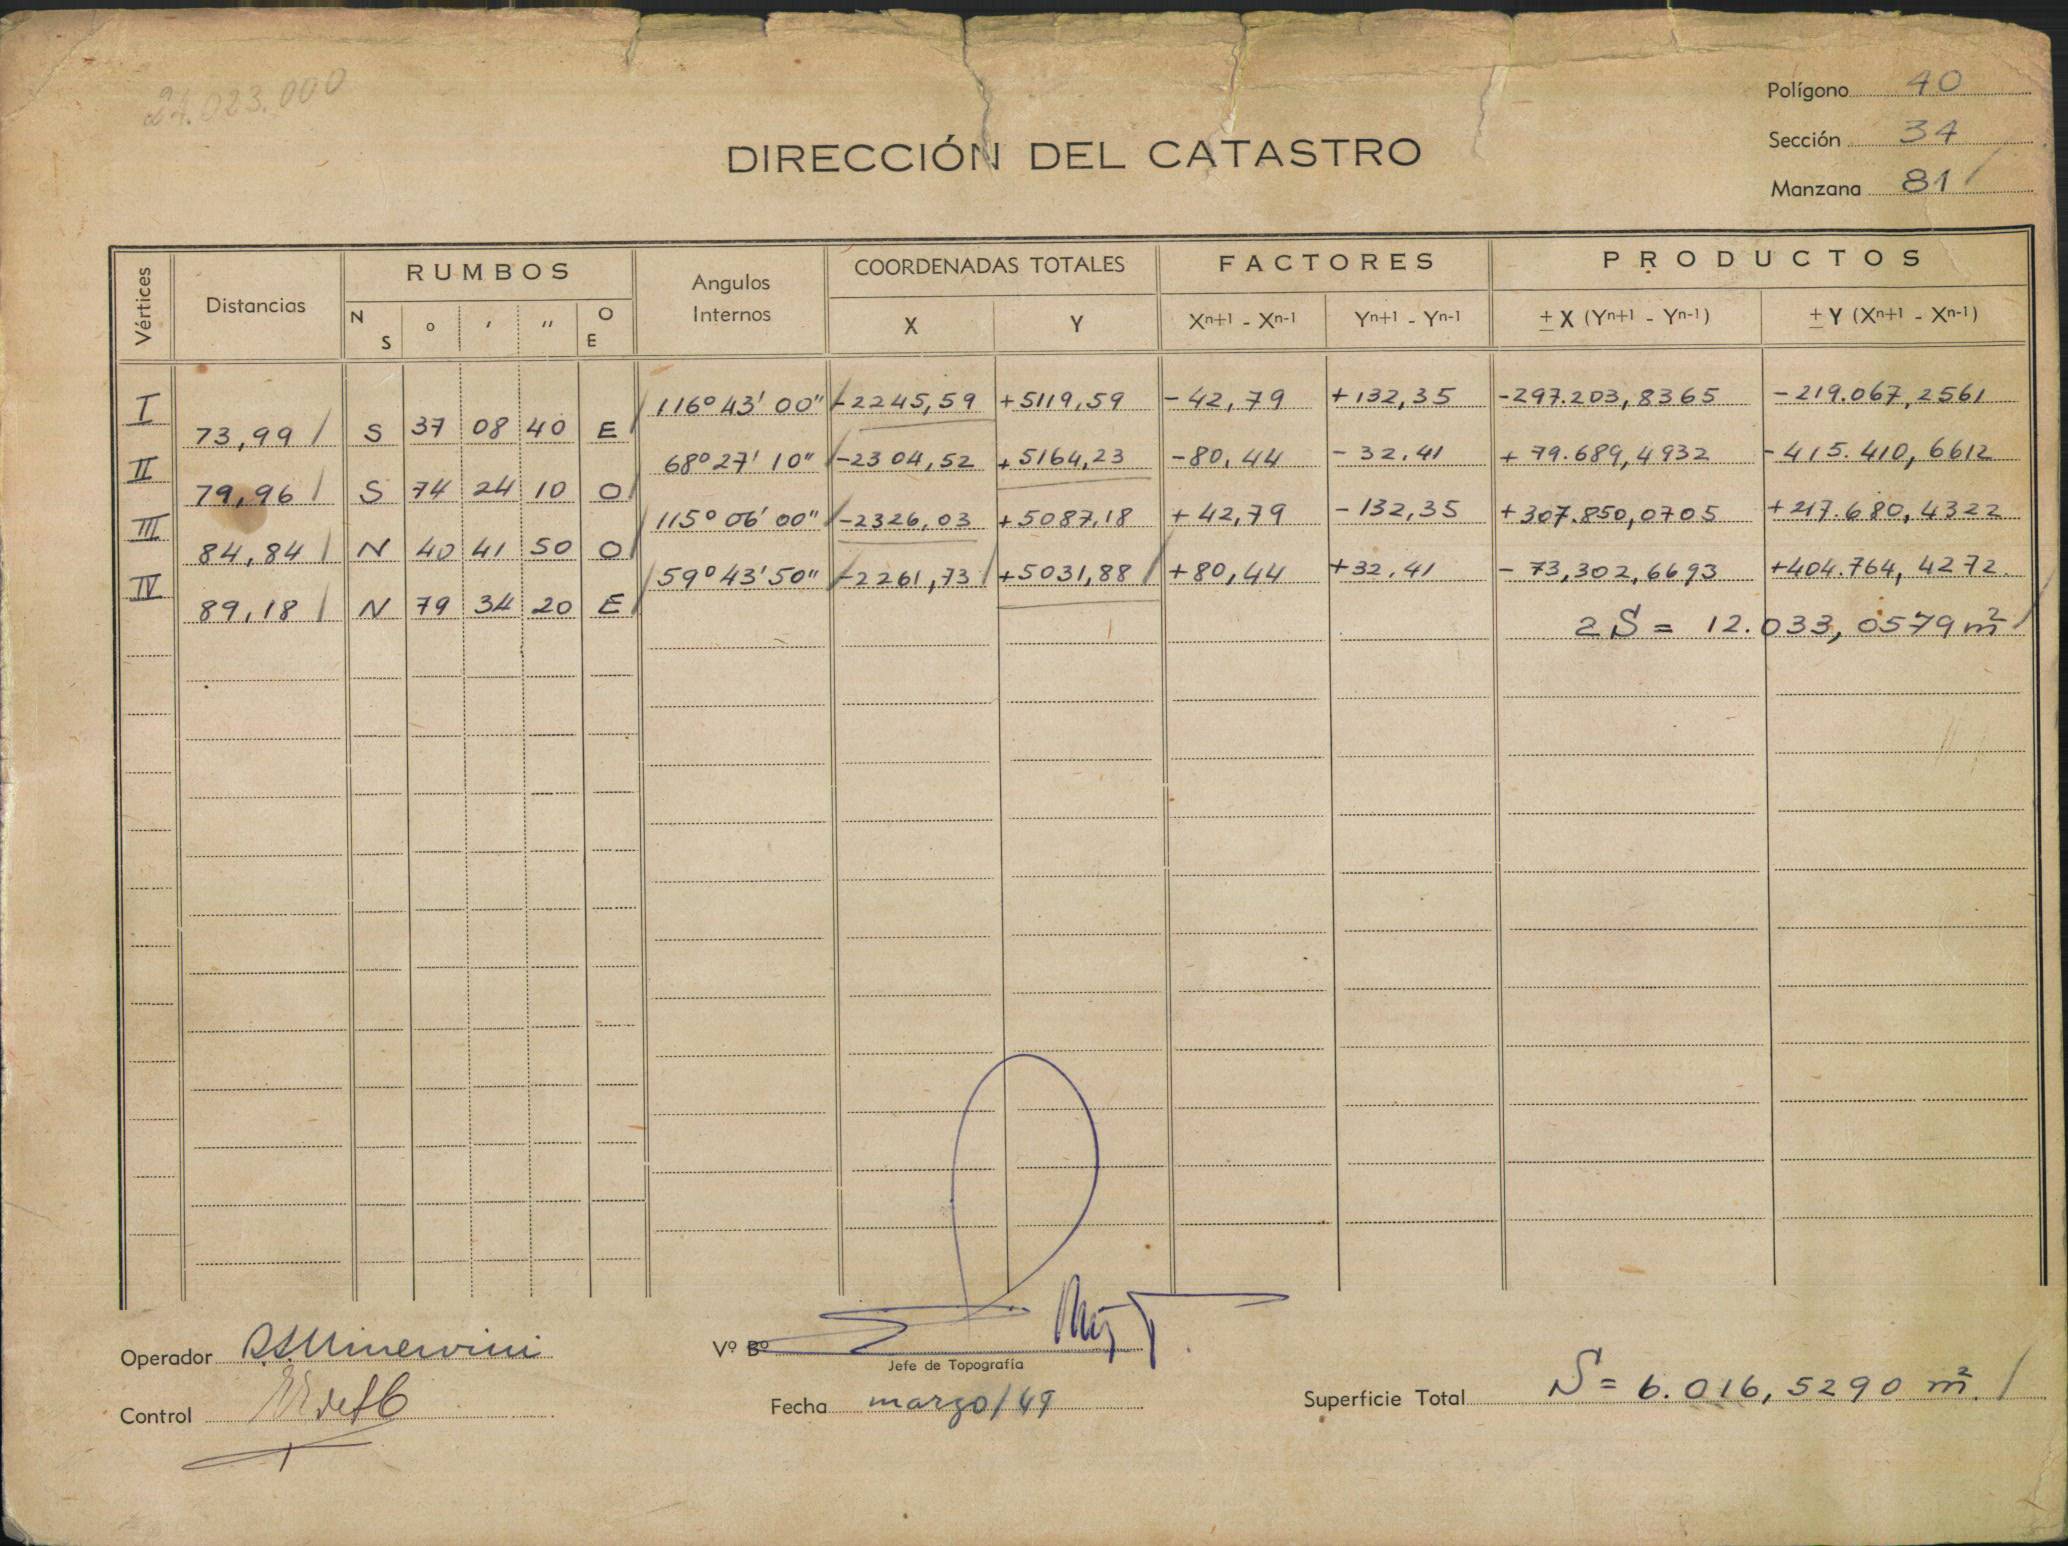 24.023.000
Polígono 40
Sección 34
Manzana 81
DIRECCIÓN DEL CATASTRO
Vértices Distancias RUMBOS Angulos Internos COORDENADAS TOTALES FACTORES PRODUCTOS
N S o ' '' O E X Y Xn+1 - Xn-1 Yn+1 - Yn-1 ± X (Yn+1 - Yn-1) ± Y (Xn+1 - Xn-1)
I 116° 43' 00" -2245,59 +5119,59 -42,79 +132,35 -297.203,8365 -219.067,2561
73,99 S 37 08 40 E
II 68° 27' 10" -2304,52 +5164,23 -80,44 -32.41 +79.689,4932 -415.410,6612
79,96 S 74 24 10 O
III 115° 06' 00" -2326,03 +5087,18 +42,79 -132,35 +307.850,0705 +217.680,4322
84,84 N 40 41 50 O
IV 59° 43' 50" -2261,73 +5031,88 +80,44 +32.41 -73,302,6693 +404.764,4272
89,18 N 79 34 20 E
2S = 12.033,0579 m²
Operador Minervini
Vº Bº
Jefe de Topografía
Control
Fecha marzo/49
Superficie Total S = 6.016,5290 m²